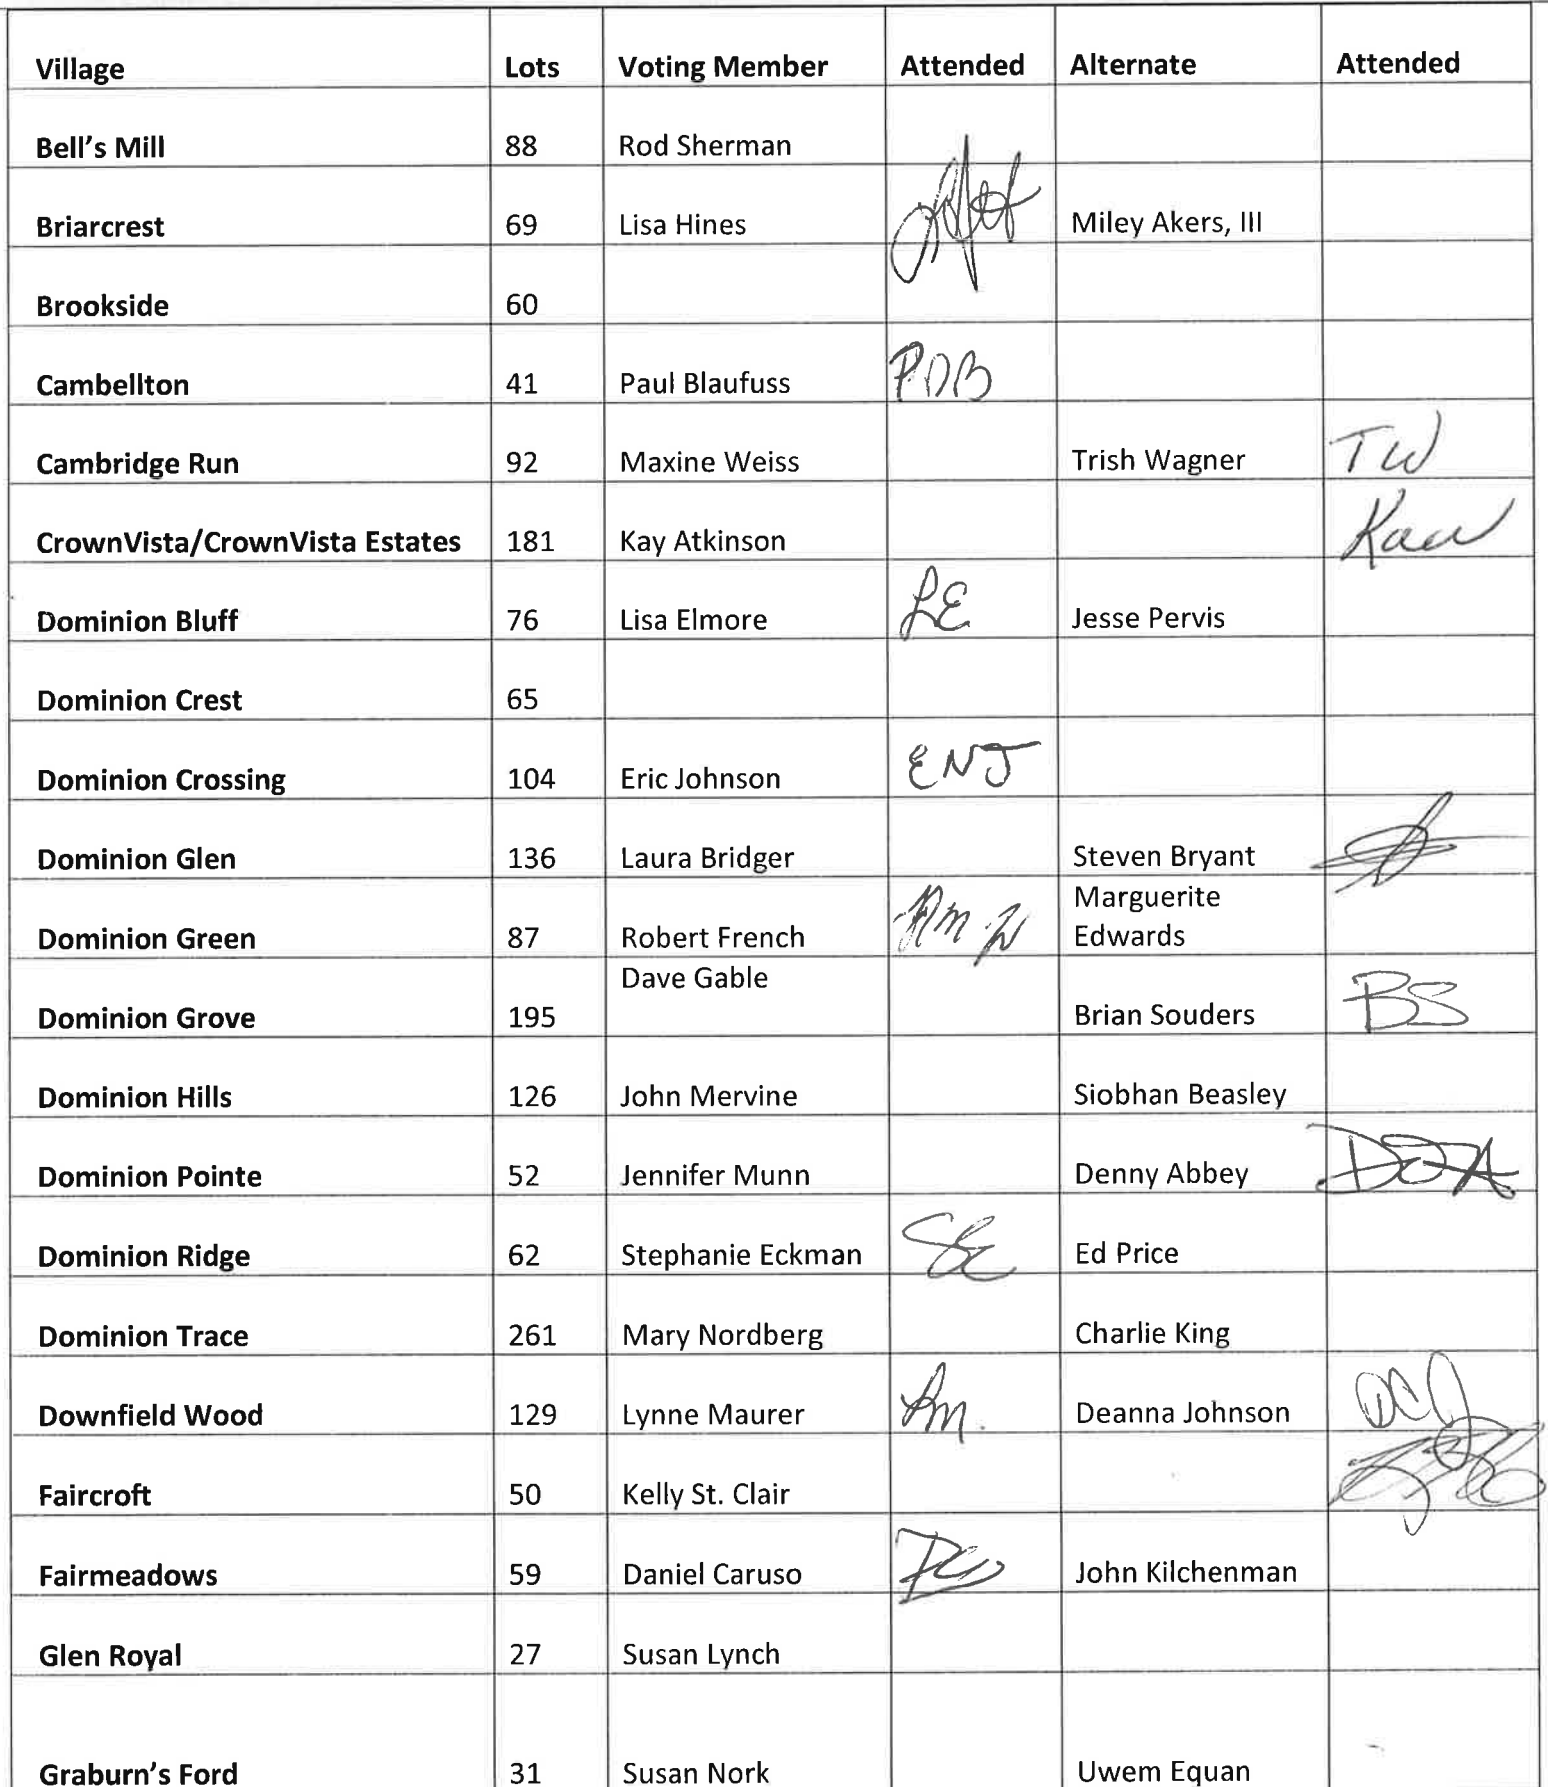 Village Lots Voting Member Attended Alternate Attended
Bell's Mill 88 Rod Sherman
Briarcrest 69 Lisa Hines Miley Akers, III
Brookside 60
Cambellton 41 Paul Blaufuss PDB
Cambridge Run 92 Maxine Weiss Trish Wagner TW
CrownVista/CrownVista Estates 181 Kay Atkinson
Dominion Bluff 76 Lisa Elmore LE Jesse Pervis
Dominion Crest 65
Dominion Crossing 104 Eric Johnson ENJ
Dominion Glen 136 Laura Bridger Steven Bryant
Marguerite
Dominion Green 87 Robert French Edwards
Dave Gable
Dominion Grove 195 Brian Souders BS
Dominion Hills 126 John Mervine Siobhan Beasley
Dominion Pointe 52 Jennifer Munn Denny Abbey DOA
Dominion Ridge 62 Stephanie Eckman SE Ed Price
Dominion Trace 261 Mary Nordberg Charlie King
Downfield Wood 129 Lynne Maurer Lm. Deanna Johnson DCJ
Faircroft 50 Kelly St. Clair
Fairmeadows 59 Daniel Caruso John Kilchenman
Glen Royal 27 Susan Lynch
Graburn's Ford 31 Susan Nork Uwem Equan